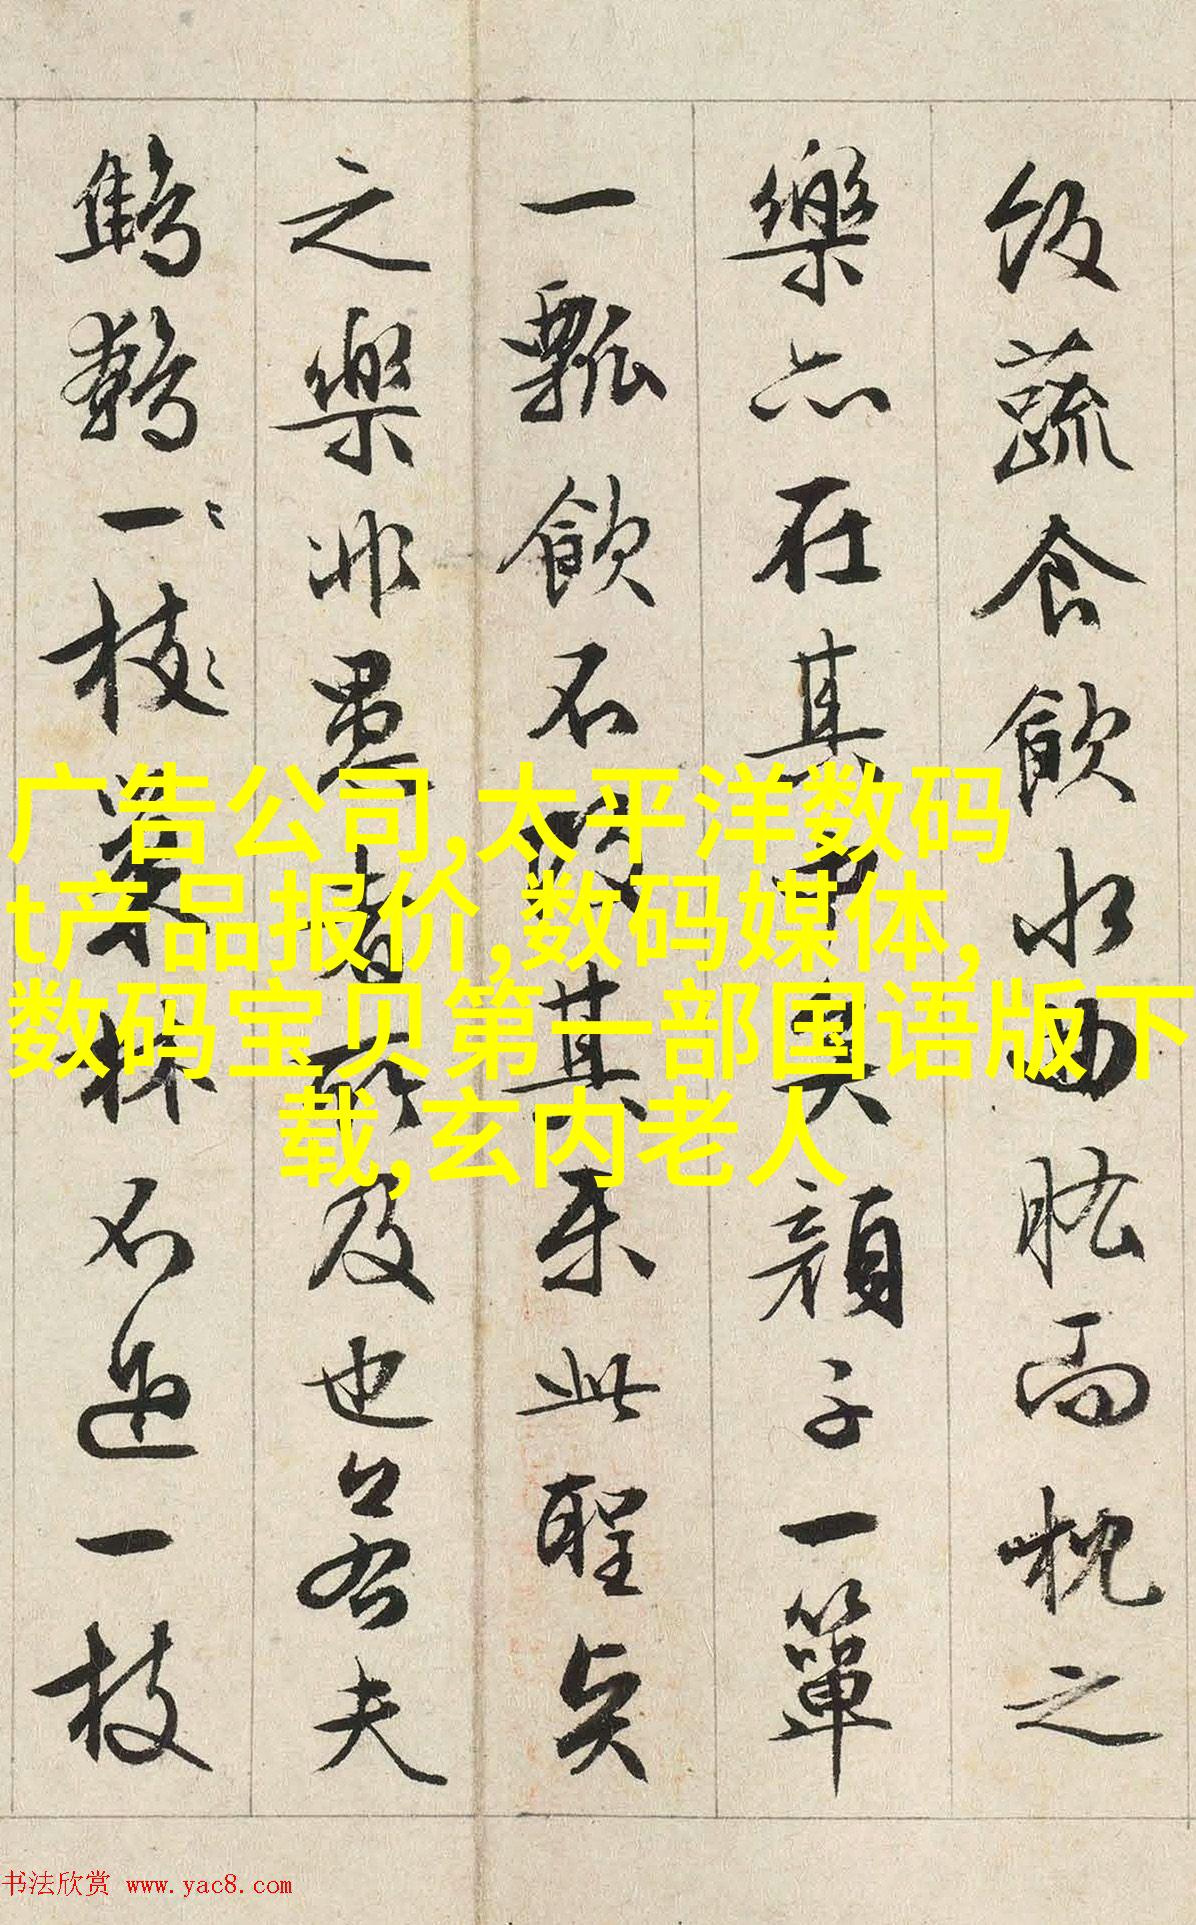 飯蔬食飲水曲肱而枕之
樂亦在其中矣顏子一簞
一瓢飲不改其樂此聖賢
之樂非愚者所及也若夫
鷦鷯一〻枝〻巢林不過一枝
广告公司,太平洋数码
t产品报价,数码媒体,
数码宝贝第一部国语版下
载,玄内老人
书法欣赏 www.yac8.com